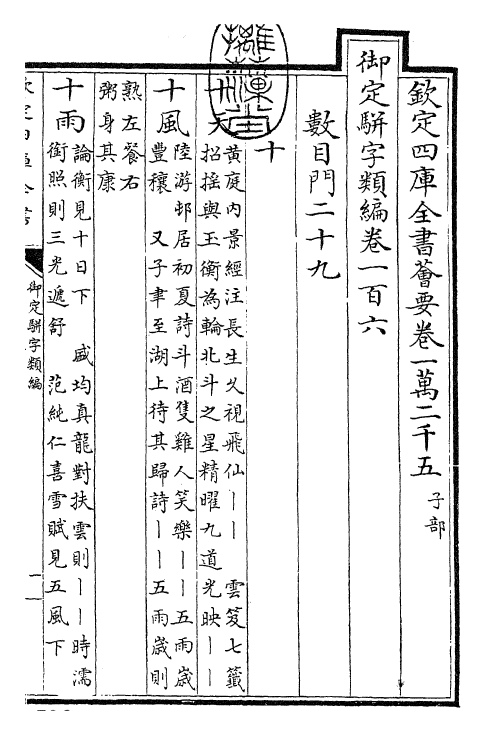 欽定四庫全書薈要卷一萬二千五 子部
御定駢字類編卷一百六
數目門二十九
十
十天 黃庭内景經注長生久視飛仙丨丨 雲笈七籤
招搖與玉衡為輪北斗之星精曜九道光映丨丨
十風 陸游邨居初夏詩斗酒隻雞人笑樂丨丨五雨歲
豐穰 又子聿至湖上待其歸詩丨丨五雨歲則
熟左餐右
粥身其康
十雨 論衡見十日下 戚均真龍對扶雲則丨丨時濡
銜照則三光遞舒 范純仁喜雪賦見五風下
御定駢字類編